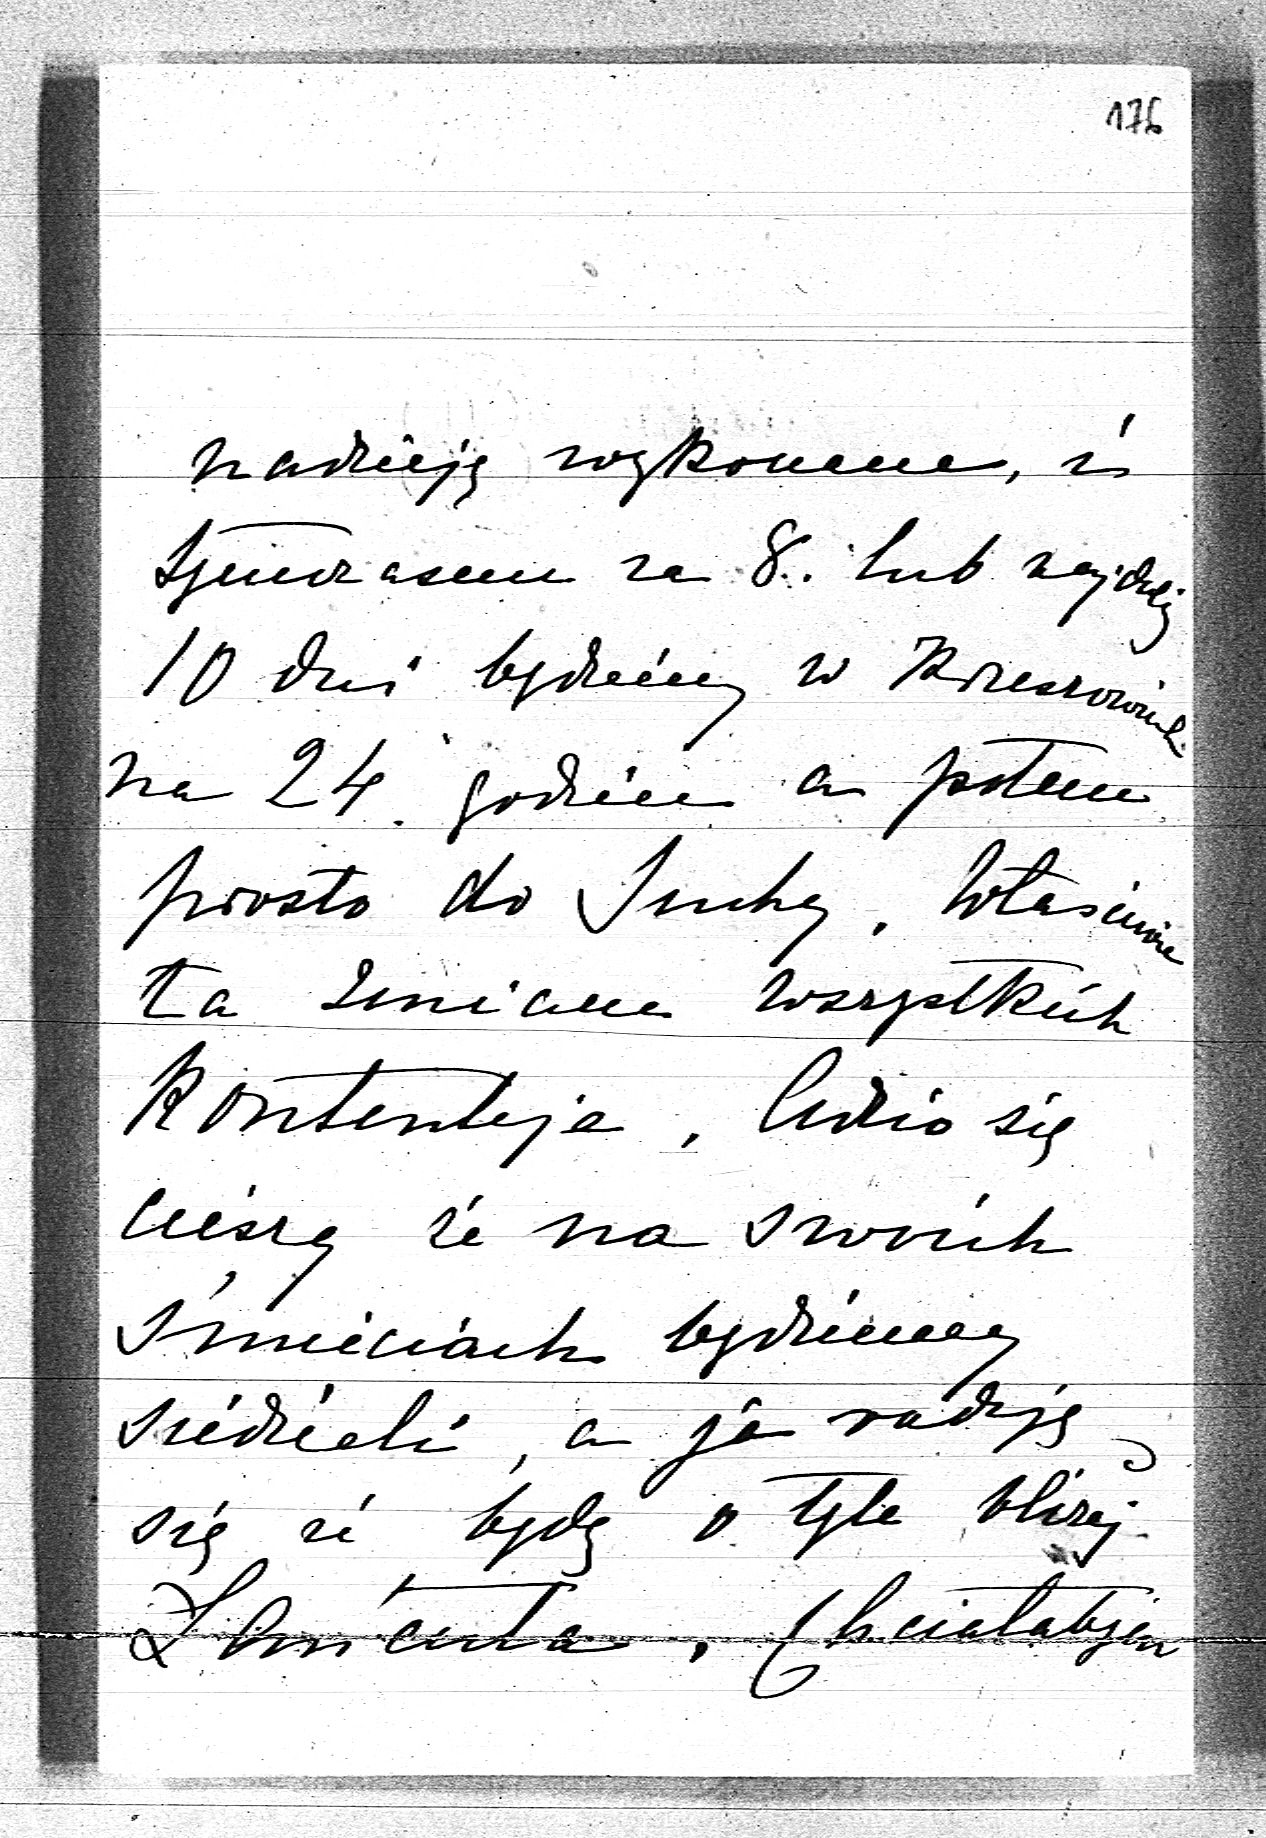 176
nadzieję wykonane, iż
tymczasem za 8. lub najdalej
10 dni będziemy w Krzeszowicach
na 24 godzin a potem
prosto do Suchy, Właściwie
ta zmiana wszystkich
kontentuje, Adzio się
cieszy że na swoich
śmieciach będziemy
siedzieli, a ja raduję
się że będę o tyle bliżej
Łańcuta. Chciałabym